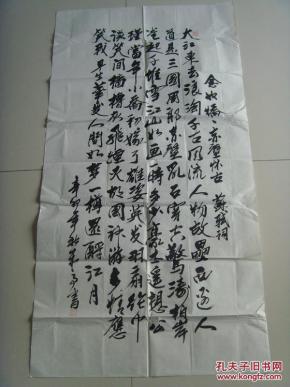 赤壁怀古 蘇軾詞
大江東去浪淘千古風流人物故壘西邊人
道是三國周郎赤壁亂石穿空驚濤拍岸
卷起千堆雪江山如画一時多少豪杰遙想公
瑾當年小喬初嫁了雄姿英发羽扇綸巾
談笑間檣櫓灰飛煙灭故國神游多情應
笑我早生華发人間如梦一樽還酹江月
辛卯年秋
孔夫子旧书网